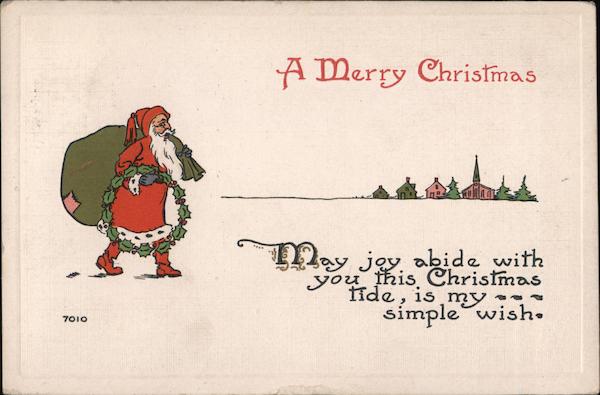 A Merry Christmas
May joy abide with
you this Christmas
tide, is my ----
simple wish.
7010